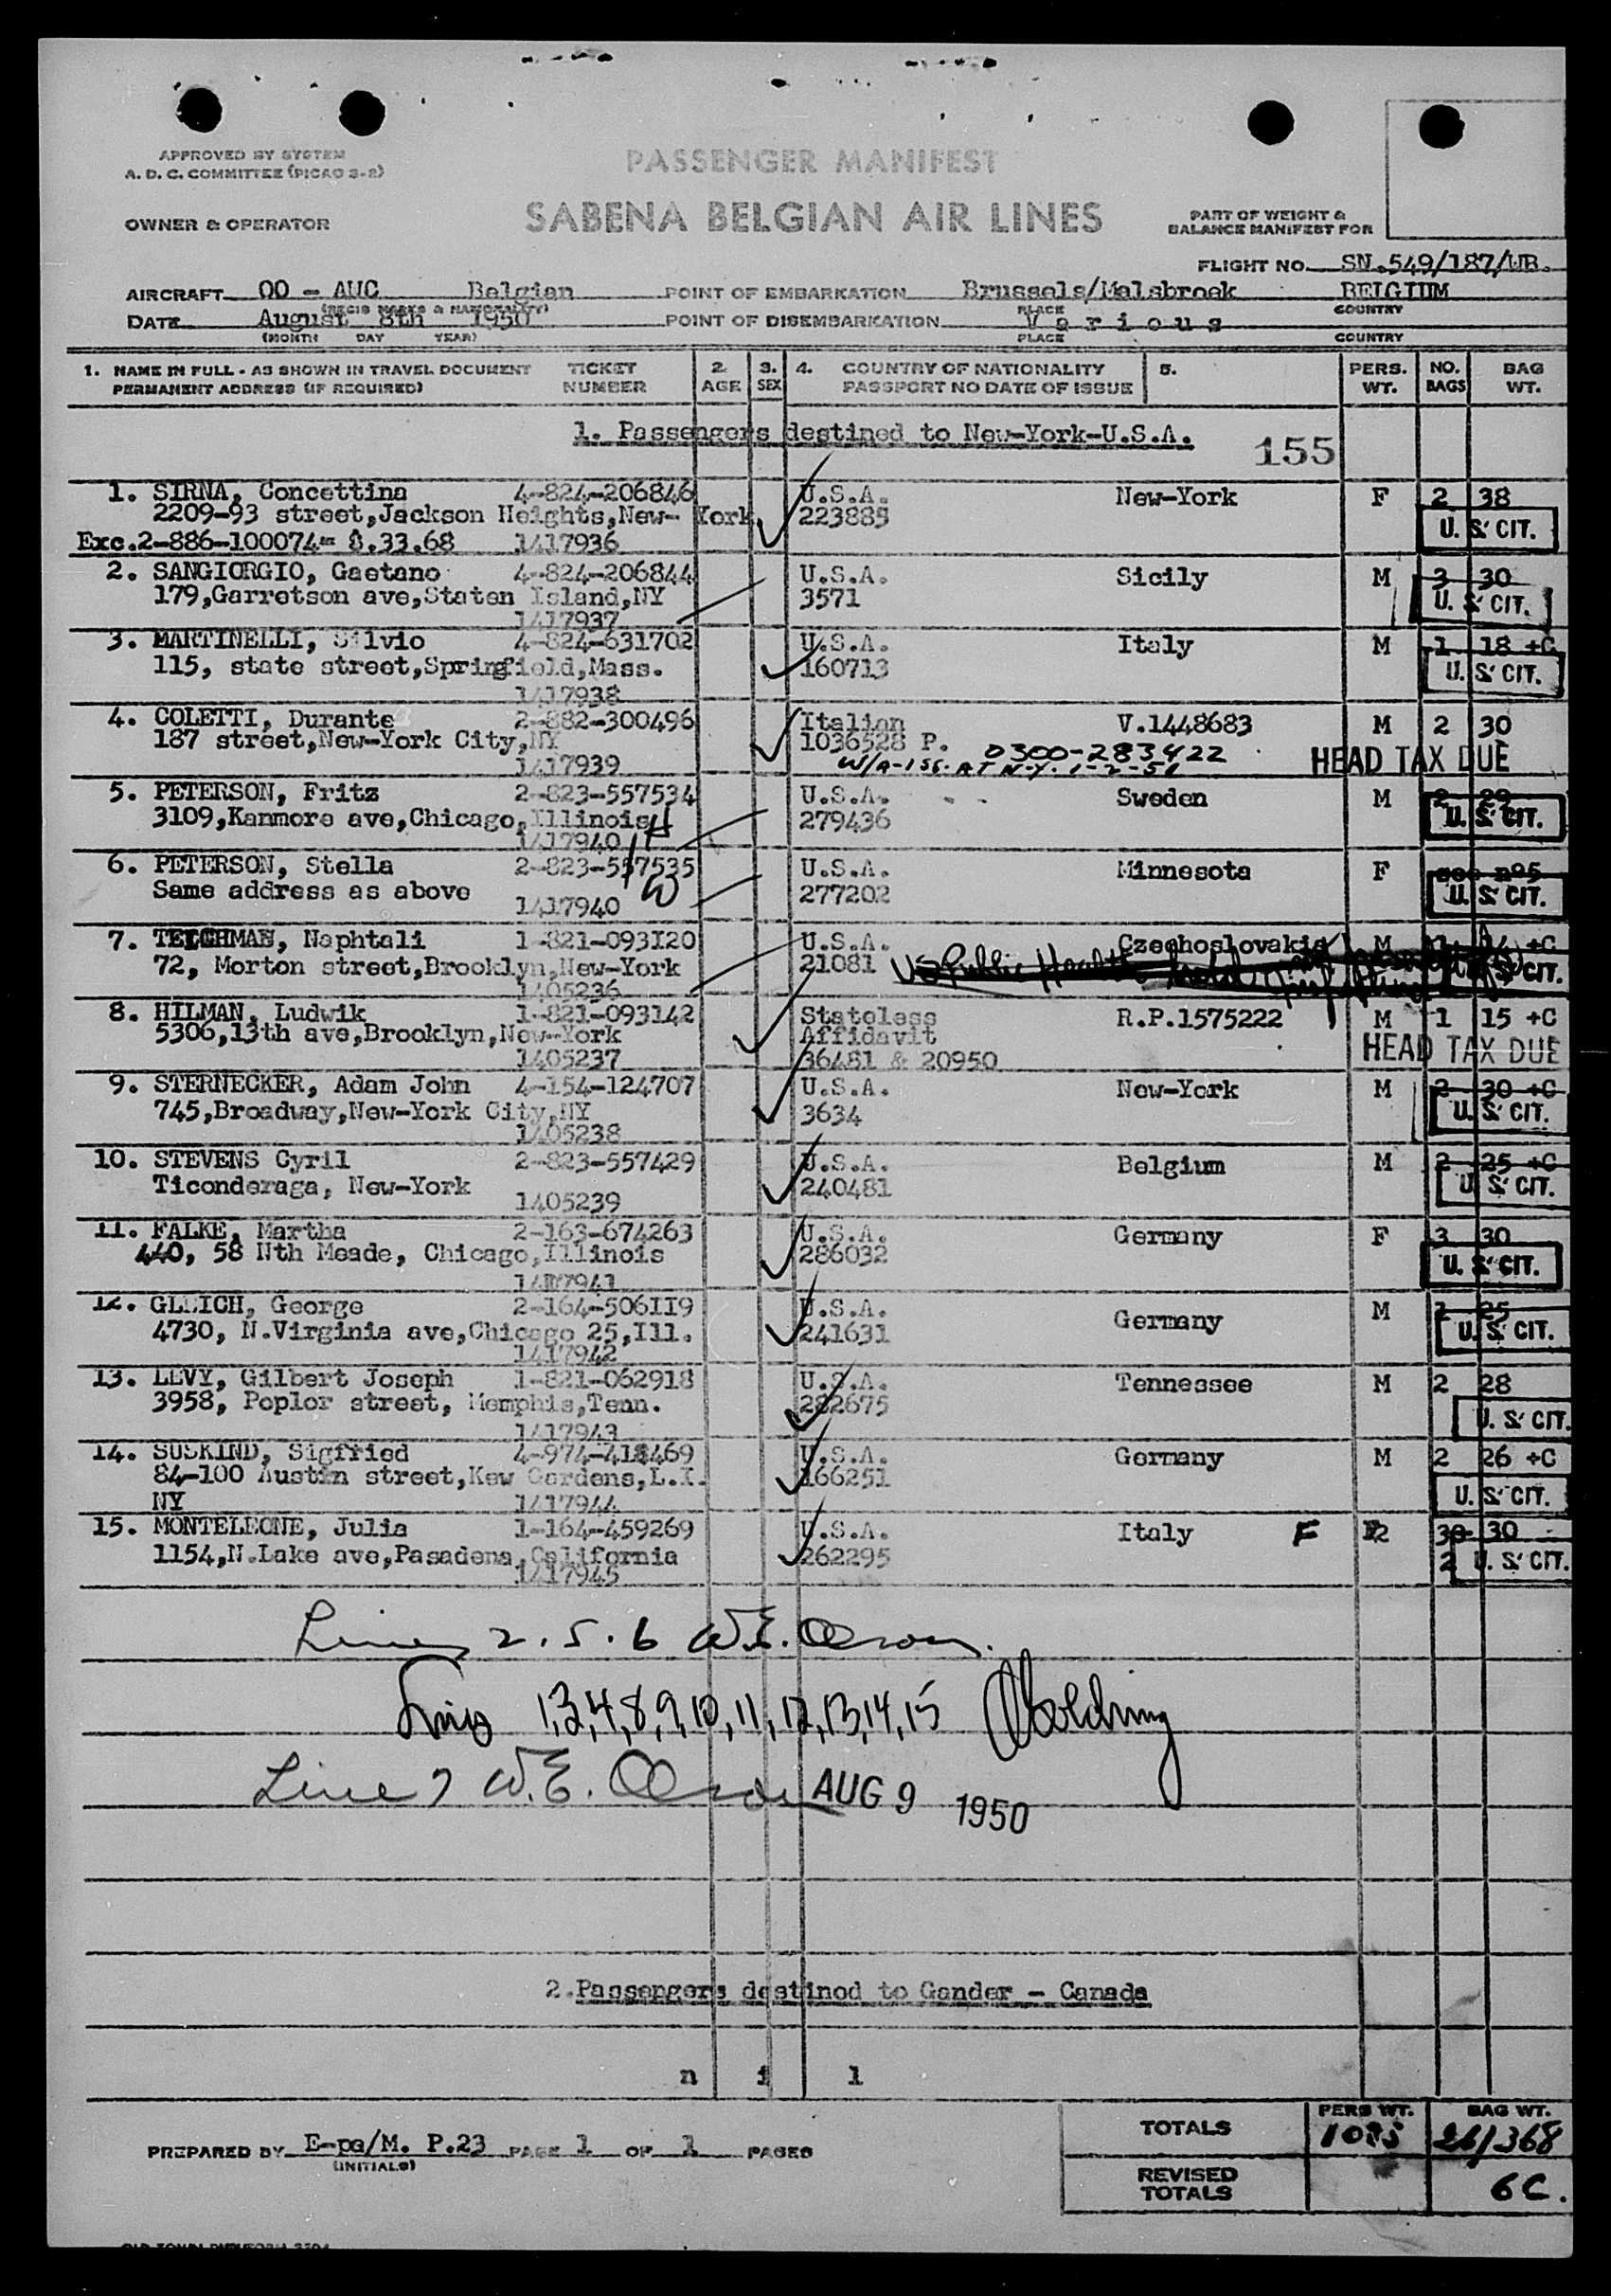 APPROVED BY SYSTEM
A. D. C. COMMITTEE (PICAO 3-2)
PASSENGER MANIFEST
OWNER & OPERATOR
SABENA BELGIAN AIR LINES
PART OF WEIGHT &
BALANCE MANIFEST FOR
FLIGHT NO. SN.549/187/UB.
AIRCRAFT OO - AUC Belgian POINT OF EMBARKATION Brussels/Melsbroek BELGIUM
(REGIS MARKS & NATIONALITY) PLACE COUNTRY
DATE August 8th 1950 POINT OF DISEMBARKATION Various
(MONTH DAY YEAR) PLACE COUNTRY
1. NAME IN FULL - AS SHOWN IN TRAVEL DOCUMENT TICKET 2. 3. 4. COUNTRY OF NATIONALITY 5. PERS. NO. BAG
PERMANENT ADDRESS (IF REQUIRED) NUMBER AGE SEX PASSPORT NO DATE OF ISSUE WT. BAGS WT.
1. Passengers destined to New-York-U.S.A. 155
1. SIRNA, Concettina 4-824-206846 U.S.A. New-York F 2 38
2209-93 street,Jackson Heights,New-York 223885 U. S. CIT.
Exc.2-886-100074= $.33.68 1417936
2. SANGIORGIO, Gaetano 4-824-206844 U.S.A. Sicily M 3 30
179,Garretson ave,Staten Island,NY 3571 U. S. CIT.
1417937
3. MARTINELLI, Silvio 4-824-631702 U.S.A. Italy M 1 18 +C
115, state street,Springfield,Mass. 160713 U. S. CIT.
1417938
4. COLETTI, Durante 2-882-300496 Italian V.1448683 M 2 30
187 street,New-York City,NY 1036528 P. 0300-283422 HEAD TAX DUE
1417939 W/A-ISS. AT N.Y. 1-2-51
5. PETERSON, Fritz 2-823-557534 U.S.A. Sweden M 2 29
3109,Kanmore ave,Chicago,Illinois H 279436 U. S. CIT.
1417940
6. PETERSON, Stella 2-823-557535 U.S.A. Minnesota F see n°5
Same address as above W 277202 U. S. CIT.
1417940
7. TEICHMAN, Naphtali 1-821-093120 U.S.A. Czechoslovakia M +C
72, Morton street,Brooklyn,New-York 21081 US Public Health CIT.
1405236
8. HILMAN, Ludwik 1-821-093142 Stateless R.P.1575222 M 1 15 +C
5306,13th ave,Brooklyn,New-York Affidavit HEAD TAX DUE
1405237 36481 & 20950
9. STERNECKER, Adam John 4-154-124707 U.S.A. New-York M 2 30 +C
745,Broadway,New-York City,NY 3634 U. S. CIT.
1405238
10. STEVENS Cyril 2-823-557429 U.S.A. Belgium M 2 25 +C
Ticonderaga, New-York 240481 U. S. CIT.
1405239
11. FALKE, Martha 2-163-674263 U.S.A. Germany F 3 30
440, 58 Nth Meade, Chicago,Illinois 286032 U. S. CIT.
1417941
12. GLEICH, George 2-164-506119 U.S.A. Germany M 1 25
4730, N.Virginia ave,Chicago 25,Ill. 241631 U. S. CIT.
1417942
13. LEVY, Gilbert Joseph 1-821-062918 U.S.A. Tennessee M 2 28
3958, Poplor street, Memphis,Tenn. 282675 U. S. CIT.
1417943
14. SUSKIND, Sigfried 4-974-418469 U.S.A. Germany M 2 26 +C
84-100 Austin street,Kew Gardens,L.I. 166251 U. S. CIT.
NY 1417944
15. MONTELEONE, Julia 1-164-459269 U.S.A. Italy F 30 30
1154,N.Lake ave,Pasadena,California 262295 2 U. S. CIT.
1417945
Lines 2.5.6 W.E. Olson.
Lines 1,3,4,8,9,10,11,12,13,14,15 Golding
Line 7 W.E. Olson AUG 9 1950
2.Passengers destined to Gander - Canada
n i l
TOTALS PERS WT. BAG WT.
1085 26/368
PREPARED BY E-pa/M. P.23 PAGE 1 OF 1 PAGES
(INITIALS)
REVISED
TOTALS 6C.